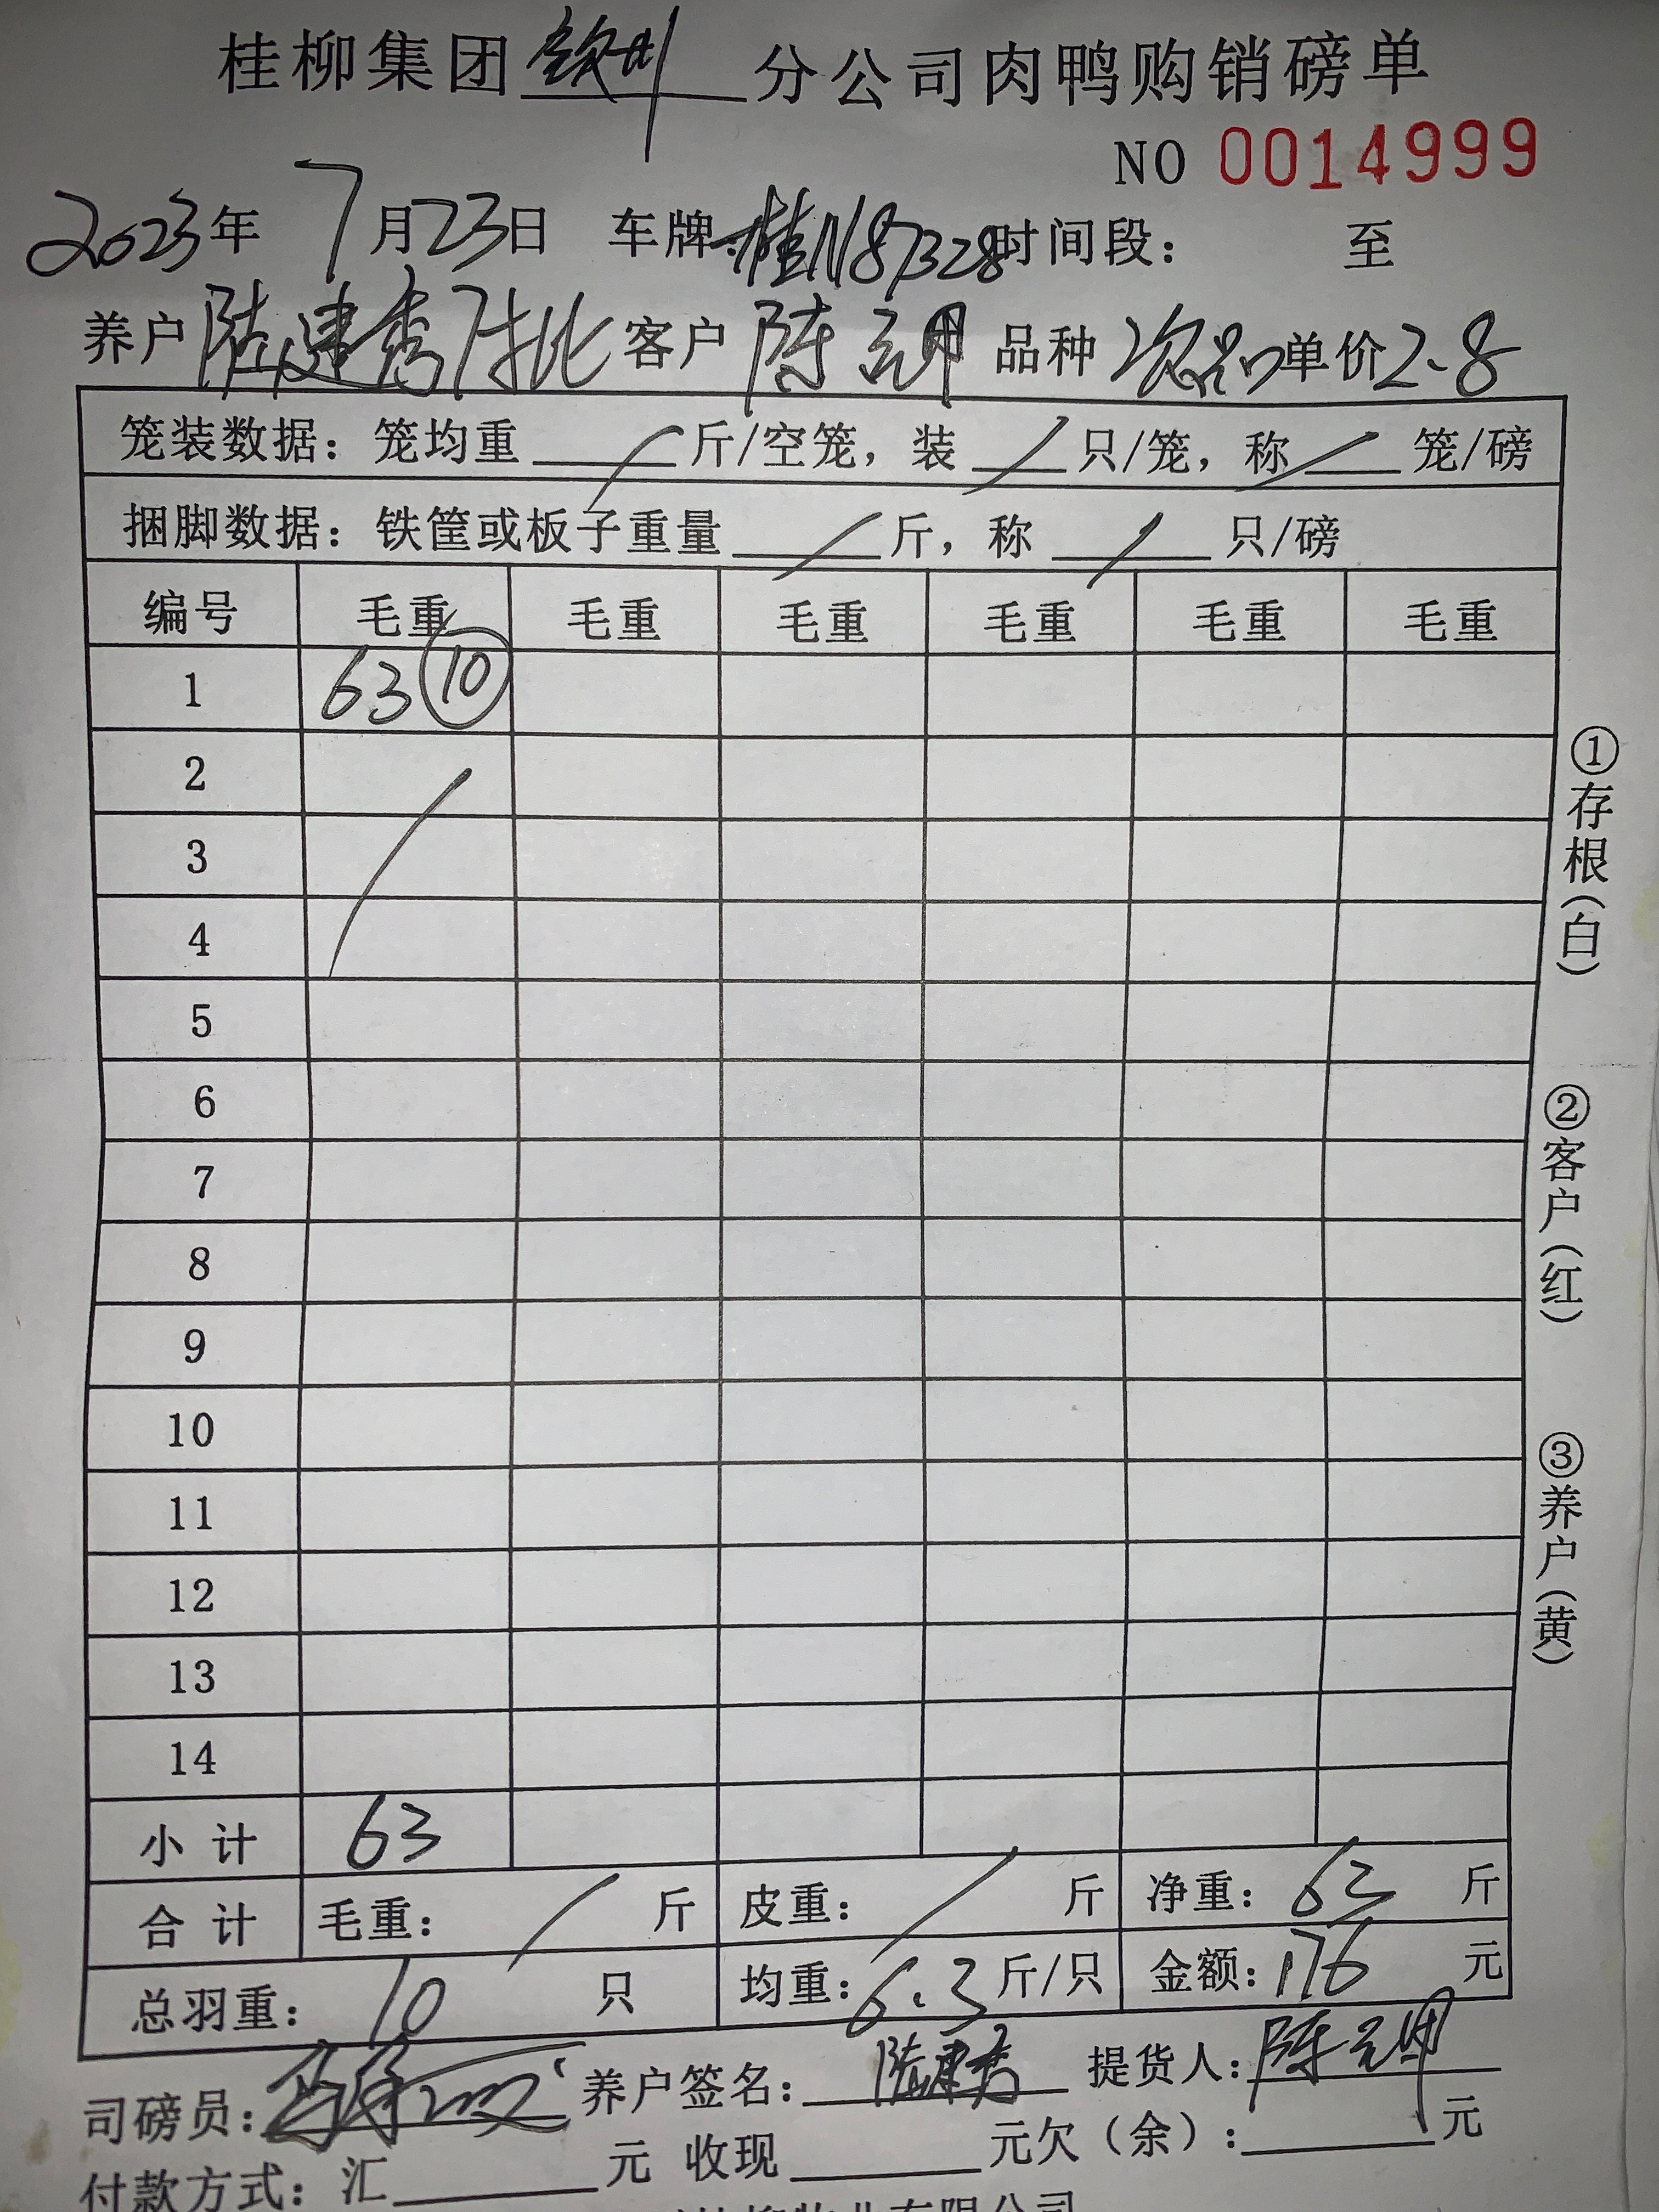 桂柳集团钦州分公司肉鸭购销磅单
NO 0014999
2023年 7月23日 车牌:桂N87328时间段: 至
养户陆建秀 客户 陈 品种 次品 单价2.8
笼装数据: 笼均重 / 斤/空笼, 装 / 只/笼, 称 / 笼/磅
捆脚数据: 铁筐或板子重量 / 斤, 称 / 只/磅
编号 毛重 毛重 毛重 毛重 毛重 毛重
1 63 ⑩
2
3
4
5
6
7
8
9
10
11
12
13
14
小计 63
合计 毛重: / 斤 皮重: / 斤 净重: 63 斤
总羽重: 10 只 均重: 6.3 斤/只 金额: 176 元
司磅员: 养户签名: 陆建秀 提货人: 陈
付款方式: 汇 元 收现 元欠(余): 元
牧业有限公司
①存根(白)
②客户(红)
③养户(黄)